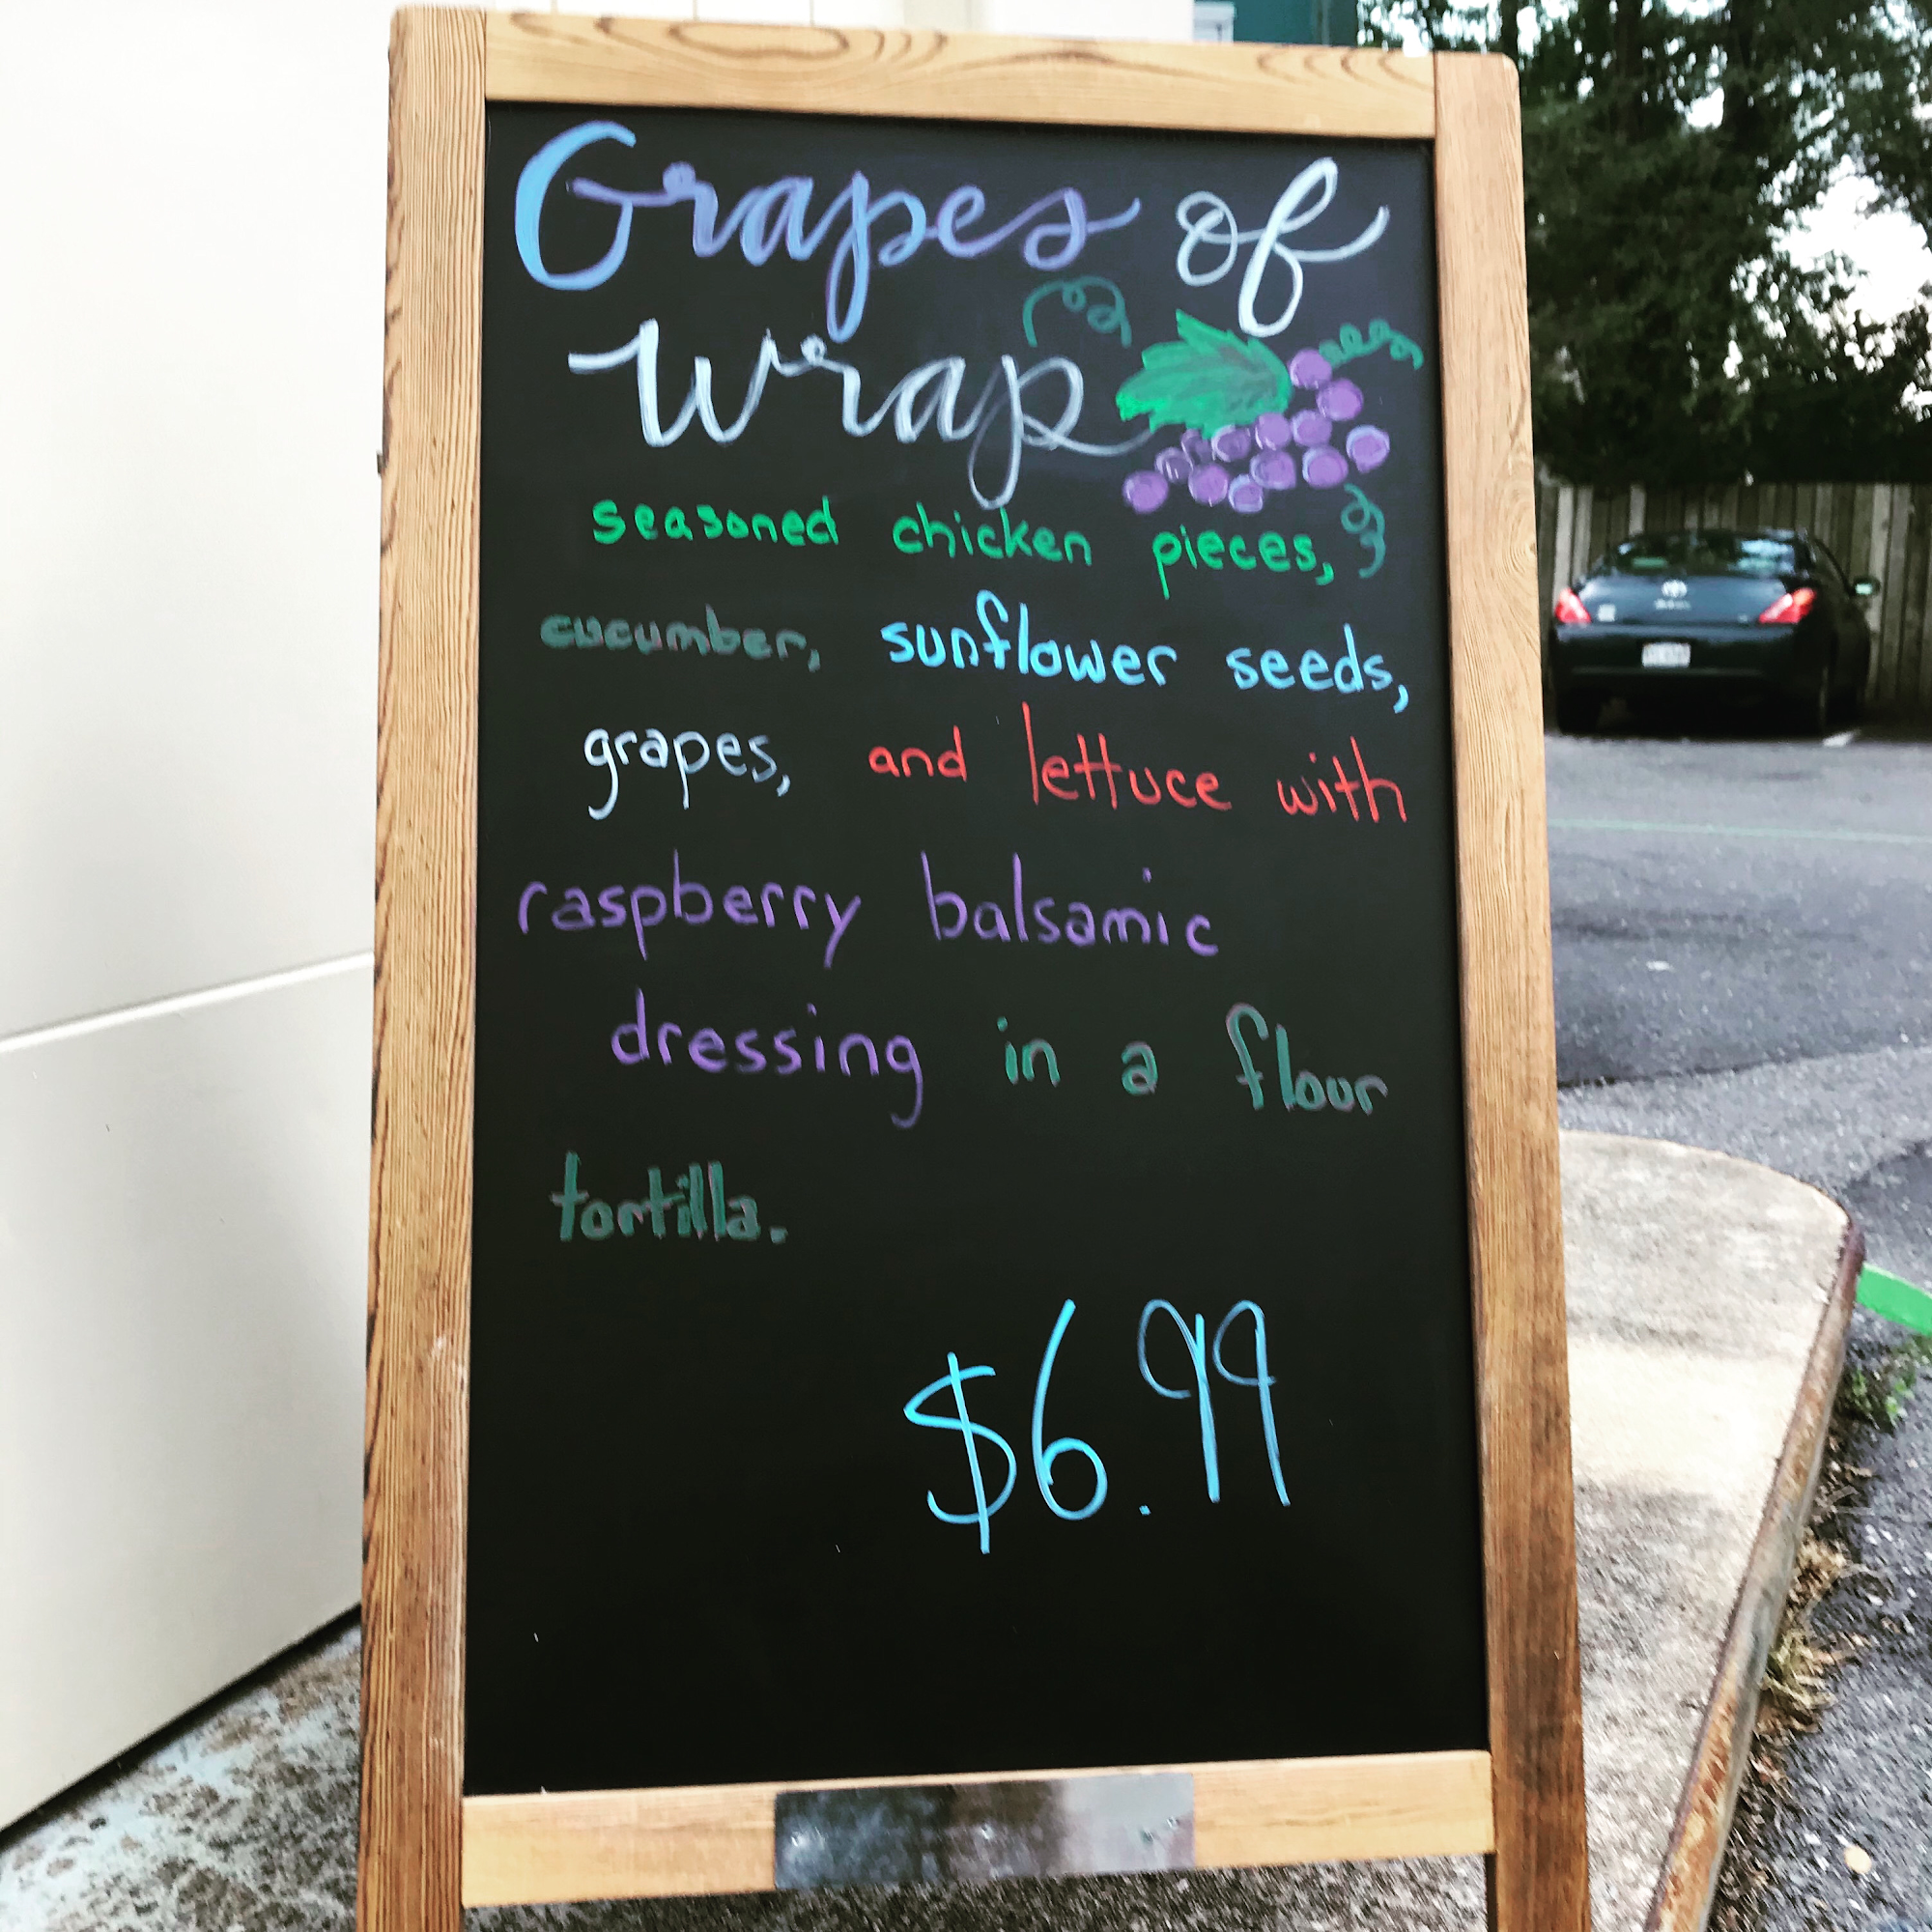 Grapes of
wrap
seasoned chicken pieces,
cucumber, sunflower seeds,
grapes, and lettuce with
raspberry balsamic
dressing in a flour
tortilla.
$6.99